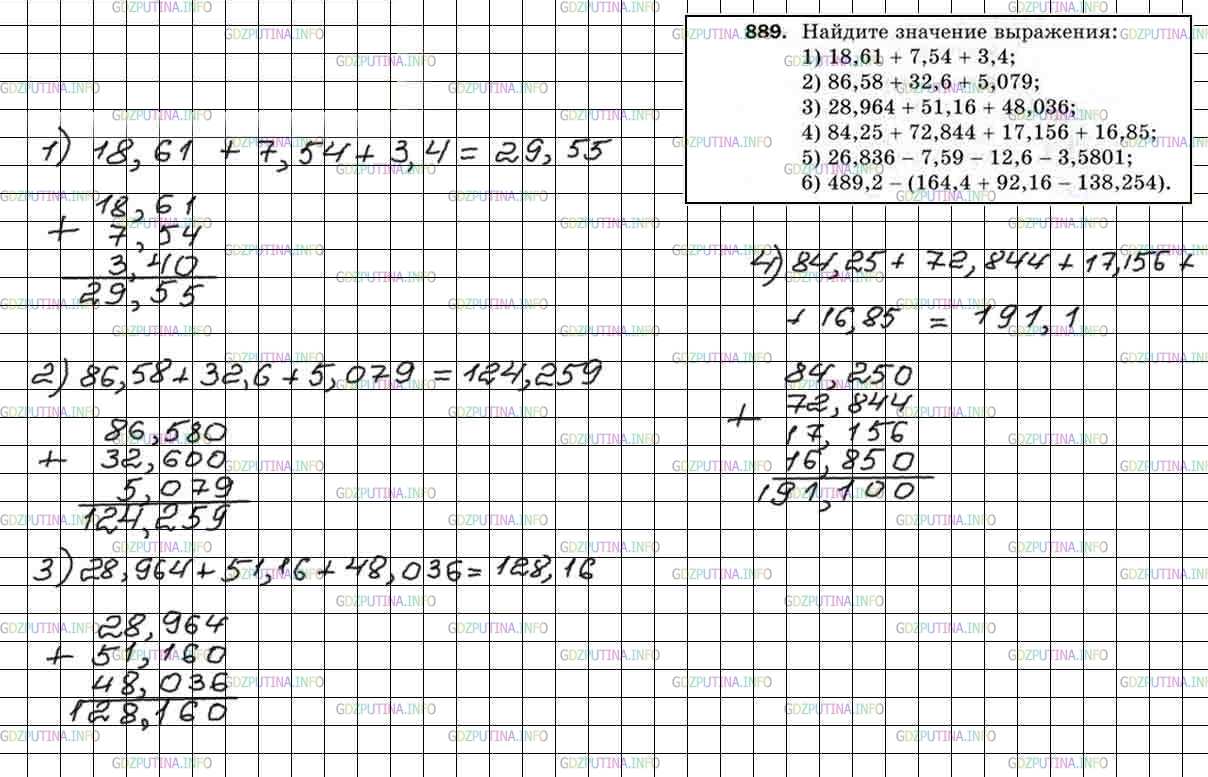 889. Найдите значение выражения:
1) 18,61 + 7,54 + 3,4;
2) 86,58 + 32,6 + 5,079;
3) 28,964 + 51,16 + 48,036;
4) 84,25 + 72,844 + 17,156 + 16,85;
5) 26,836 − 7,59 − 12,6 − 3,5801;
6) 489,2 − (164,4 + 92,16 − 138,254).
1) 18,61 + 7,54 + 3,4 = 29,55
18,61
+ 7,54
3,40
29,55
2) 86,58 + 32,6 + 5,079 = 124,259
86,580
+ 32,600
5,079
124,259
3) 28,964 + 51,16 + 48,036 = 128,16
28,964
+ 51,160
48,036
128,160
4) 84,25 + 72,844 + 17,156 +
+ 16,85 = 191,1
84,250
+ 72,844
17,156
16,850
191,100
GDZPUTINA.INFO